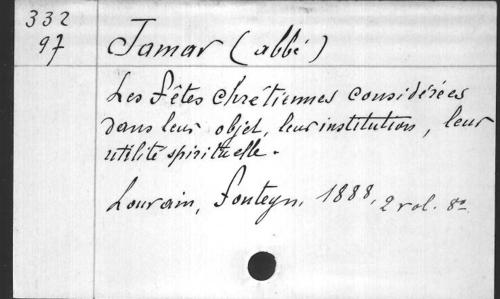 332
97
Jamar (abbé)
Les fêtes chrétiennes considérées
dans leur objet, leur institution, leur
utilité spirituelle.
Louvain, Fonteyn, 1888, 2 vol. 8º